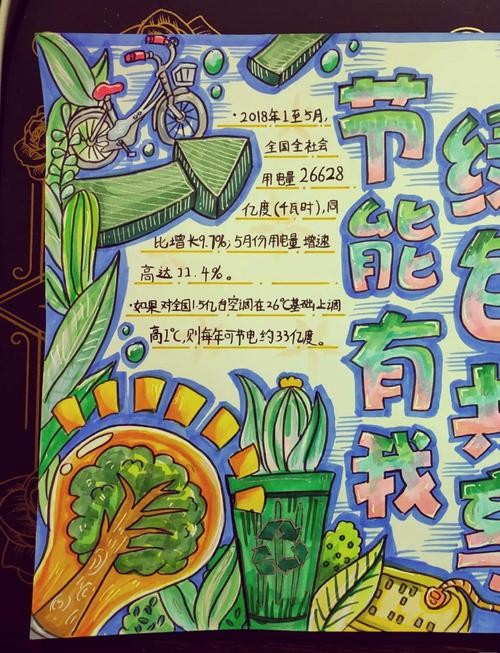 ·2018年1至5月,
全国全社会
用电量26628
亿度(千瓦时),同
比增长9.7%,5月份用电量增速
高达11.4%。
·如果对全国1.5亿台空调在26℃基础上调
高1℃,则每年可节电约33亿度。
节能有我
绿色共享